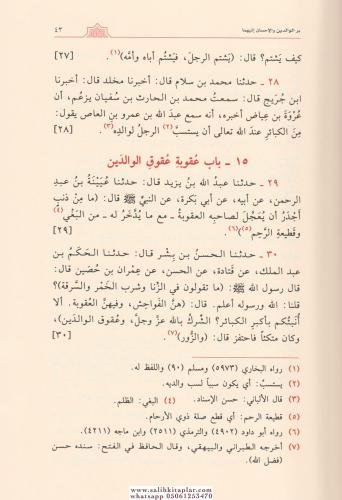 بر الوالدين والإحسان إليهما ٤٣
كيف يَشتم؟ قال: (يَشتم الرجلَ، فيَشتُم أباه وأمَّه)(١). [٢٧]
٢٨ - حدثنا محمد بن سلام قال: أخبرنا مخلد قال: أخبرنا
ابن جُرَيج قال: سمعتُ محمد بن الحارث بن سُفيان يزعُم، أن
عُرْوَةَ بن عِياض أخبره، أنه سمع عبدَ الله بن عمرو بن العاص يقول:
مِنَ الكبائر عندَ الله تعالى أن يستسبَّ(٢) الرجلُ لوالدِه(٣). [٢٨]
١٥ - باب عُقوبةِ عُقوقِ الوالدَين
٢٩ - حدثنا عبدُ الله بنُ يزيد قال: حدثنا عُيَيْنَةُ بنُ عبدِ
الرحمن، عن أبيه، عن أبي بكرة، عن النبي ﷺ قال: (ما مِن ذَنبٍ
أجدَرُ أن يُعَجلَ لصاحبِه العقوبةُ ـ مع ما يُدَّخرُ له ـ من البَغْي(٤)
وقطيعةِ الرَّحِم(٥))(٦). [٢٩]
٣٠ - حدثنا الحسنُ بن بِشْر قال: حدثنا الحَكَمُ بن
عبد الملك، عن قَتادة، عن الحسن، عن عِمران بن حُصَين قال:
قال رسول الله ﷺ: (ما تقولون في الزِّنا وشربِ الخَمْر والسَّرِقة)؟
قلنا: الله ورسوله أعلم. قال: (هنَّ الفواحِش، وفيهنَّ العُقوبة. ألا
أُنبّئكم بأكبرِ الكبائر؟ الشِّركُ بالله عزَّ وجلَّ، وعُقوق الوالدَين)،
وكان متكئاً فاحتفز قال: (والزُّور)(٧). [٣٠]
(١) رواه البخاري (٥٩٧٣) ومسلم (٩٠) واللفظ له.
(٢) يستسبّ: أي يكون سبباً لسب والديه.
(٣) قال الألباني: حسن الإسناد. (٤) البغي: الظلم.
(٥) قطيعة الرحم: أي قطع صلة ذوي الأرحام.
(٦) رواه أبو داود (٤٩٠٢) والترمذي (٢٥١١) وابن ماجه (٤٢١١).
(٧) أخرجه الطبراني والبيهقي، وقال الحافظ في الفتح: سنده حسن
(فضل الله).
www.salihkitaplar.com
whatsapp 05061253470